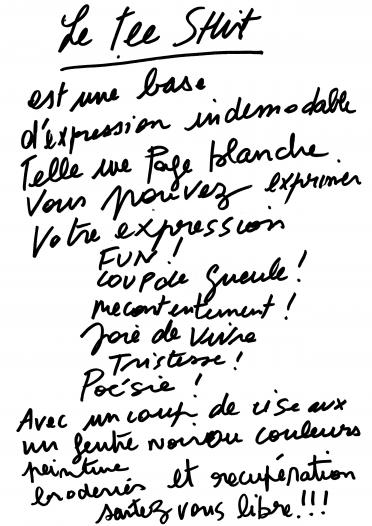 Le Tee SHirt
est une base
d'expression indemodable
Telle une Page blanche.
Vous pouvez exprimer
Votre expression
FUN !
COUP de Gueule !
mecontentement !
Joie de Vivre
Tristesse !
Poésie !
Avec un coup de ciseaux
un feutre noir ou couleurs
peinture
broderies et recupération
sentez vous libre !!!